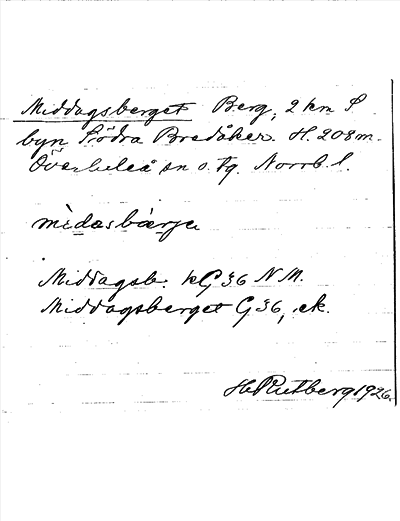 Middagsberget Berg, 2 km S
byn Södra Bredåker. H. 208 m.
Överluleå sn o. tg. Norrb. l.
mìdasbærje
Middagsb. kG36 NM.
Middagsberget G36, ek.
H. Rutberg 1926.